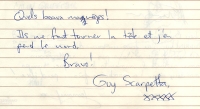 Quels beaux masques!
Ils me font tourner la tête et j'en
perd le nord.
Bravo!
Guy Scarpetta,
xxxxx